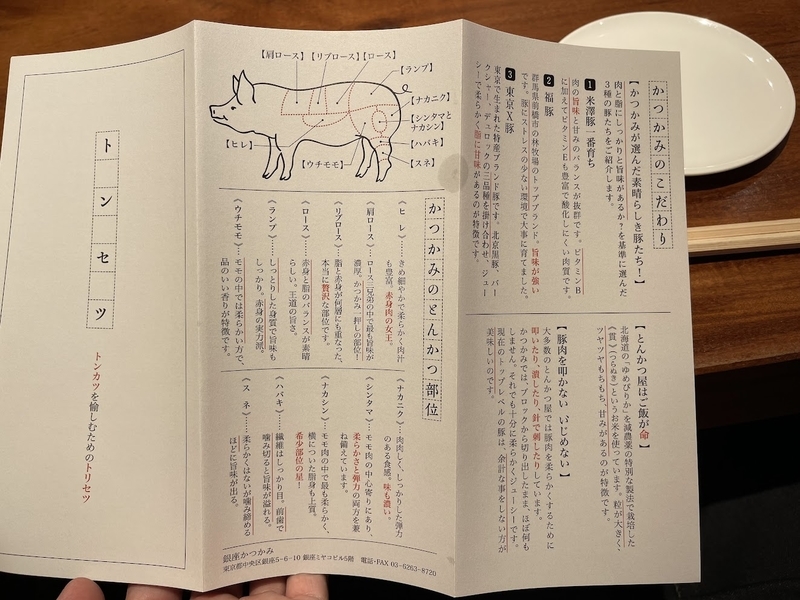 かつかみのこだわり
【かつかみが選んだ素晴らしき豚たち！】
肉と脂にしっかりと旨味があるか？を基準に選んだ
3種の豚たちをご紹介します。
1 米澤豚一番育ち
肉の旨味と甘みのバランスが抜群です。ビタミンB
に加えてビタミンEも豊富で酸化しにくい肉質です。
2 福豚
群馬県前橋市の林牧場のトップブランド。旨味が強い
です。豚にストレスの少ない環境で大事に育てました。
3 東京X豚
東京で生まれた特産ブランド豚です。北京黒豚、バー
クシャー、デュロックの三品種を掛け合わせ、ジュー
シーで柔らかく脂に甘味があるのが特徴です。
【とんかつ屋はご飯が命】
北海道の「ゆめぴりか」を減農薬の特別な製法で栽培した
《貫》（つらぬき）というお米を使っています。粒が大きく、
ツヤツヤもちもち、甘みがあるのが特徴です。
【豚肉を叩かない いじめない】
大多数のとんかつ屋では豚肉を柔らかくするために
叩いたり、潰したり、針で刺したりしています。
かつかみでは、ブロックから切り出したまま、ほぼ何も
しません。それでも十分に柔らかくジューシーです。
現在のトップレベルの豚は、余計な事をしない方が
美味しいのです。
【肩ロース】
【リブロース】
【ロース】
【ランプ】
【ナカニク】
【シンタマと
ナカシン】
【ハバキ】
【スネ】
【ウチモモ】
【ヒレ】
かつかみのとんかつ部位
《ヒ レ》……きめ細やかで柔らかく肉汁
も豊富。赤身肉の女王。
《肩ロース》……ロース三兄弟の中で最も旨味が
濃厚。かつかみ一押しの部位！
《リブロース》……脂と赤身が何層にも重なった、
本当に贅沢な部位です。
《ロース》……赤身と脂のバランスが素晴
らしい。王道の旨さ。
《ランプ》……しっとりした身質で旨味も
しっかり。赤身の実力派。
《ウチモモ》……モモの中では柔らかい方で、
品のいい香りが特徴です。
《ナカニク》……肉肉しく、しっかりした弾力
のある食感。味も濃い。
《シンタマ》……モモ肉の中心寄りにあり、
柔らかさと弾力の両方を兼
ね備えています。
《ナカシン》……モモ肉の中で最も柔らかく、
横についた脂身も上質。
希少部位の星！
《ハバキ》……繊維はしっかり目。前歯で
噛み切ると旨味が溢れる。
《ス ネ》……柔らかくはないが噛み締める
ほどに旨味が出る。
銀座かつかみ
東京都中央区銀座5-6-10 銀座ミヤコビル5階 電話・FAX 03-6263-8720
トンセツ
トンカツを愉しむためのトリセツ